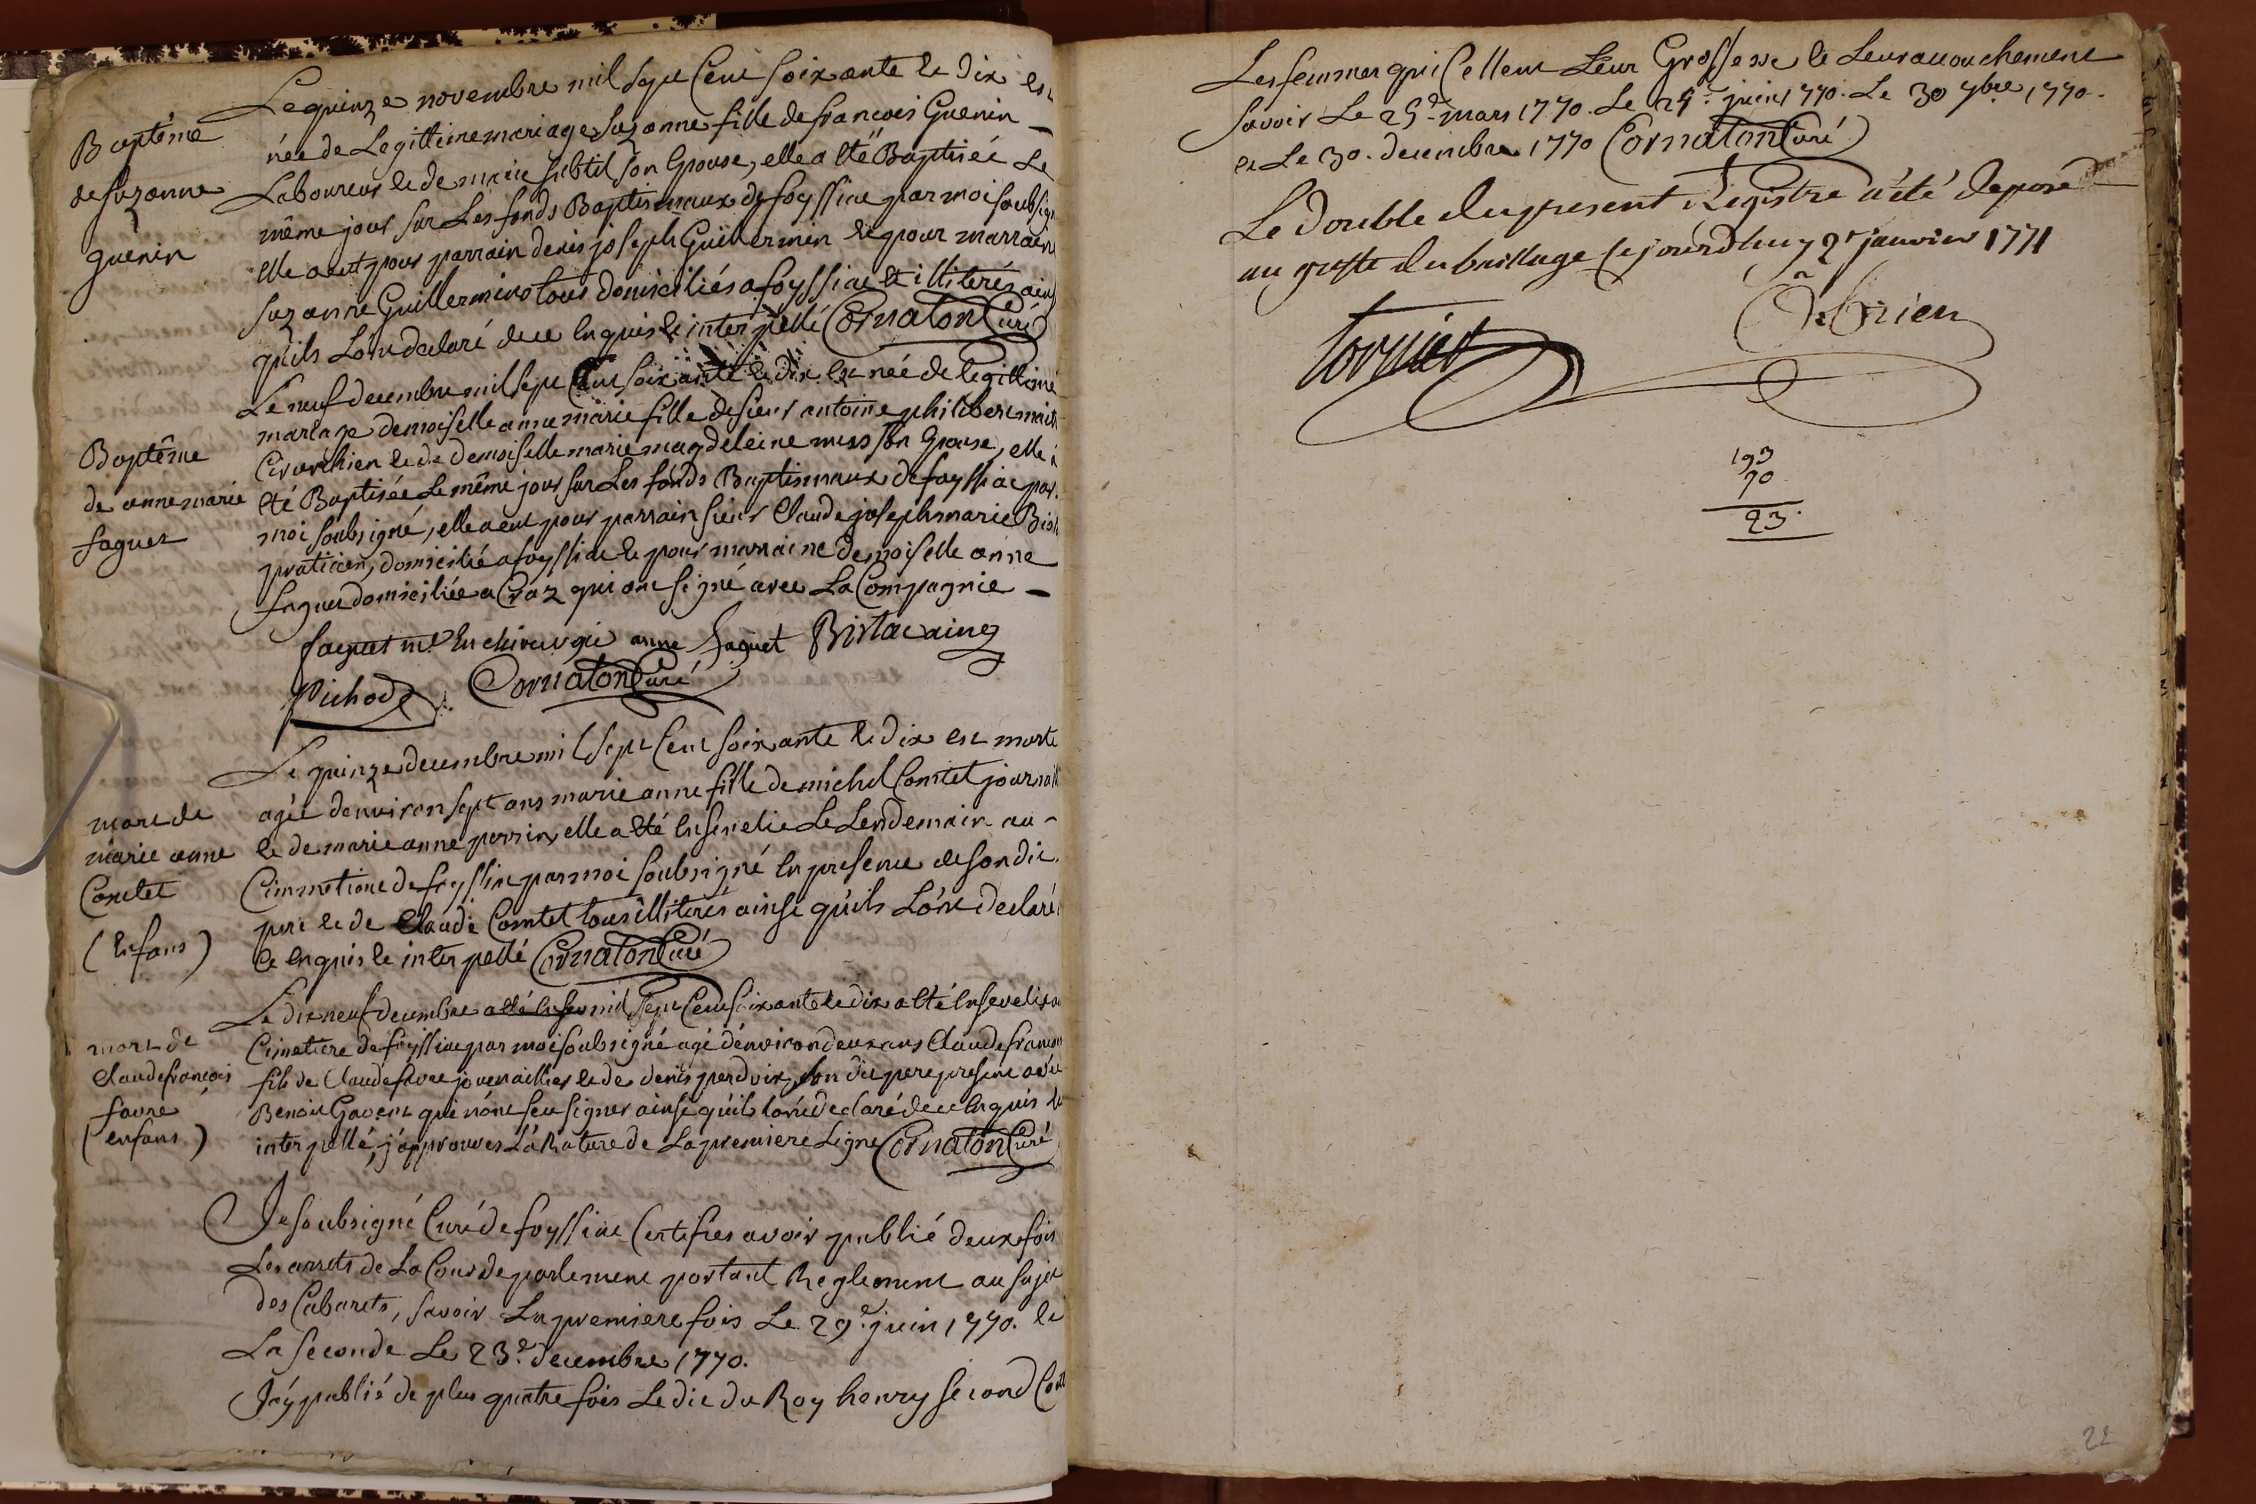 Baptême
de suzanne
guenin
Le quinze novembre mil sept Cent soixante et dix est
née de Legittime mariage suzanne fille de francois Guenin
Laboureur et de marie subtil son Epouse, elle a été Baptisée Le
même jour sur Les fonds Baptismaux de foyssiac par moi soubsigné
elle a eut pour parrain denis joseph Guillermin et pour marraine
suzanne Guillermin tous domiciliés a foyssiac et illiterés ainsi
qu'ils L'ont declaré de ce Enquis et interpellé Cornaton Curé
Baptême
de anne marie
faguet
Le neuf decembre mil sept Cent soixante et dix est née de Legittime
mariage demoiselle anne marie fille de sieur antoine philibert
Cirurchien et de demoiselle marie magdeleine son Epouse, elle a
été Baptisée Le même jour sur Les fonds Baptismaux de foyssiac par
moi soubsigné, elle a eut pour parrain sieur Claude joseph marie
praticien, domicilié a foyssiac et pour marraine demoiselle anne
faguet domiciliée a Craz qui ont signé avec La Compagnie
faguet me En chirurgie anne faguet
Pichod Cornaton Curé
mort de
marie anne
Comtet
(Enfans)
Le quinze decembre mil sept Cent soixante et dix est morte
agée denviron sept ans marie anne fille de michel Comtet
et de marie anne perrin, elle a été Ensevelie Le Lendemain au
Cimmetiere de foyssiac par moi soubsigné En presence de son dit
pere et de Claude Comtet tous illiterés ainsi qu'ils L'ont declaré
Ce Enquis et interpellé Cornaton Curé
mort de
Claude francois
favre
(enfans)
Le dix neuf decembre a été Ensev mil sept Cent soixante et dix a été Enseveli au
Cimetiere de foyssiac par moi soubsigné agé d'environ deux ans Claude francois
fils de Claude favre jouenaillier et de denise perdrix, son dit pere present avec
Benoit Gavent qui n'ont sceu signer ainsi qu'ils l'ont declaré de ce Enquis et
interpellé, j'approuves La Rature de La premiere Ligne Cornaton Curé
Je soubsigné Curé de foyssiac Certifies avoir publié deux fois
Les arrets de La Cour de parlement portant Reglement au sujet
des Cabarets, savoir La premiere fois Le 29e juin 1770. et
La seconde Le 23e decembre 1770.
J'ay publié de plus quatre fois L'edit du Roy henry second
Les femmes qui Cellent Leur Grossesse et Leur accouchement
savoir Le 25e mars 1770. Le 29e juin 1770. Le 30 7bre 1770.
et Le 30. decembre 1770 Cornaton Curé
Le double du present Registre a été deposé
au greffe du bailliage ce jourdhuy janvier 1771
193
70
23
22